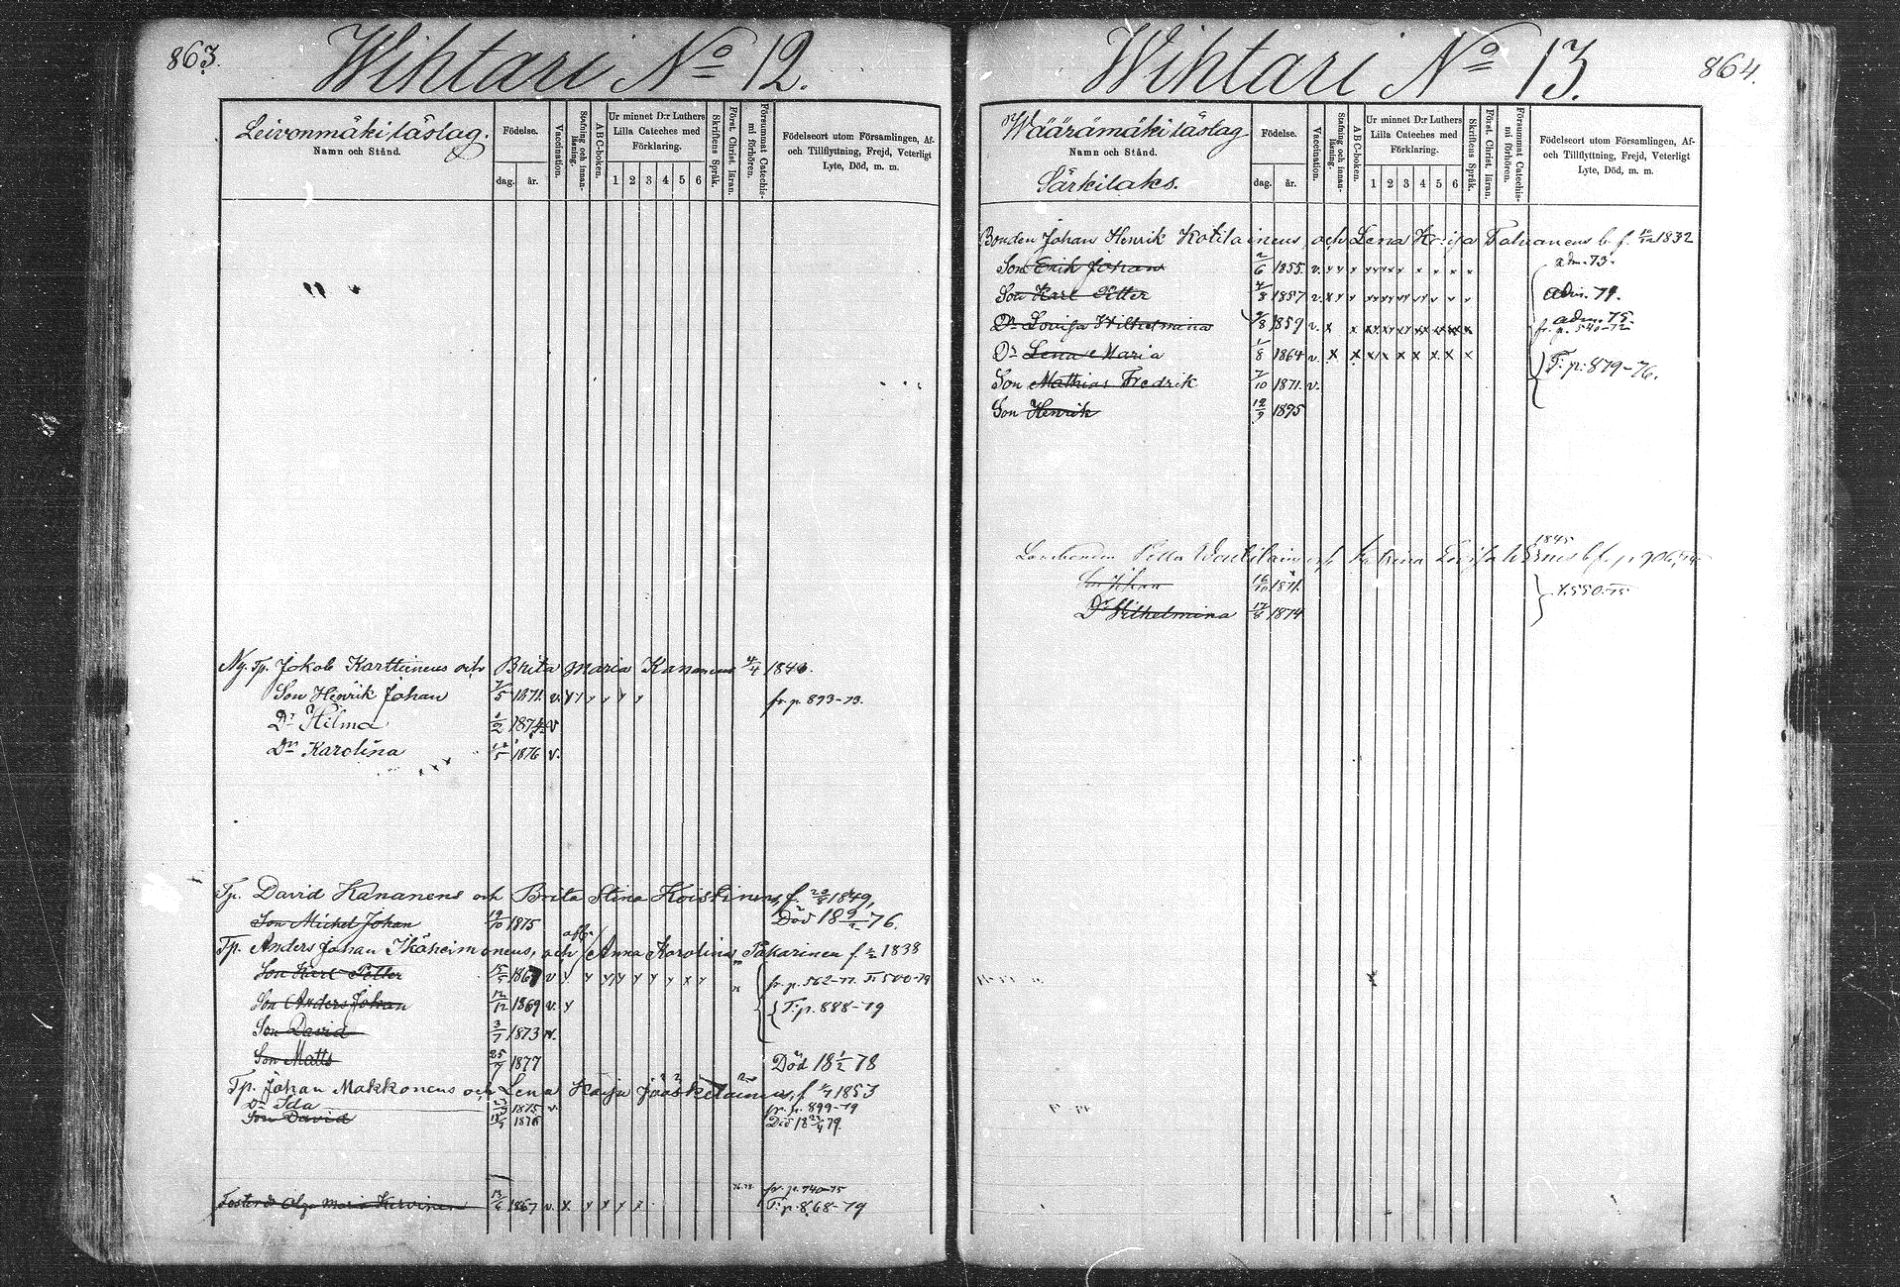 863.
Wihtari No 12.
Leivonmäki läslag.
Namn och Stånd.
Födelse.
dag. år.
Vaccination.
Stafning och innan-
läsning.
A B C-boken.
Ur minnet D:r Luthers
Lilla Cateches med
Förklaring.
1 2 3 4 5 6
Skriftens Språk.
Först. Christ. läran.
Försummat Catechis-
mi förhören.
Födelseort utom Församlingen, Af-
och Tillflyttning, Frejd, Veterligt
Lyte, Död, m. m.
Ny. Tp. Jokob Karttunens och Brita Maria Kananens 4/4
Son Henrik Johan 7/5 1871. v. fr. p. 893-73.
Dr Hilma 1/2 1874 v
Dr Karolina 12/5 1876 v.
Tp. David Kananens och Brita Stina Koistinens, f. 1849,
Son Michel Johan 19/10 1875 Död 18 9/2 76.
Tp. Anders Johan Ikäheimonens, och Anna Karolina f. 1838
Son Karl Petter 1867 v fr. p. 562-77. 500-79
Son Anders Johan 12/12 1869 v. T. p. 888-79
Son David 3/7 1873 v.
Son Matts 25/7 1877 Död 18 1/2 78
Tp. Johan Makkonens och Lena Kaisa Jääskeläinens, f 1853
Dr Ida 1875 v. fr. p. 899-79
Son David 1878 Död 18 79
fr. p. 740-75
Foster d. Olga Maria Kurvinen 13/6 1867 v. T. p. 868-79
864.
Wihtari No 13.
Wäärämäki läslag
Namn och Stånd.
Särkilaks.
Födelse.
dag. år.
Vaccination.
Stafning och innan-
läsning.
A B C-boken.
Ur minnet D:r Luthers
Lilla Cateches med
Förklaring.
1 2 3 4 5 6
Skriftens Språk.
Först. Christ. läran.
Försummat Catechis-
mi förhören.
Födelseort utom Församlingen, Af-
och Tillflyttning, Frejd, Veterligt
Lyte, Död, m. m.
Bonden Johan Henrik Kotilainens, och Lena Krisa Tahvanens f. 1832
Son Erik Johan 2/6 1855. v. adm. 73.
Son Karl Petter 4/8 1857 v. adm. 79.
Dr Lovisa Wilhelmina 9/8 1859 v. adm. 75.
fr. p. 540-72
Dr Lena Maria 1/8 1864 v. T. p. 879-76.
Son Mathias Fredrik 7/10 1871. v.
Son Henrik 12/9 1875
1845
och Katrina Lovisa
1871.
Dr Wilhelmina 17/8 1874